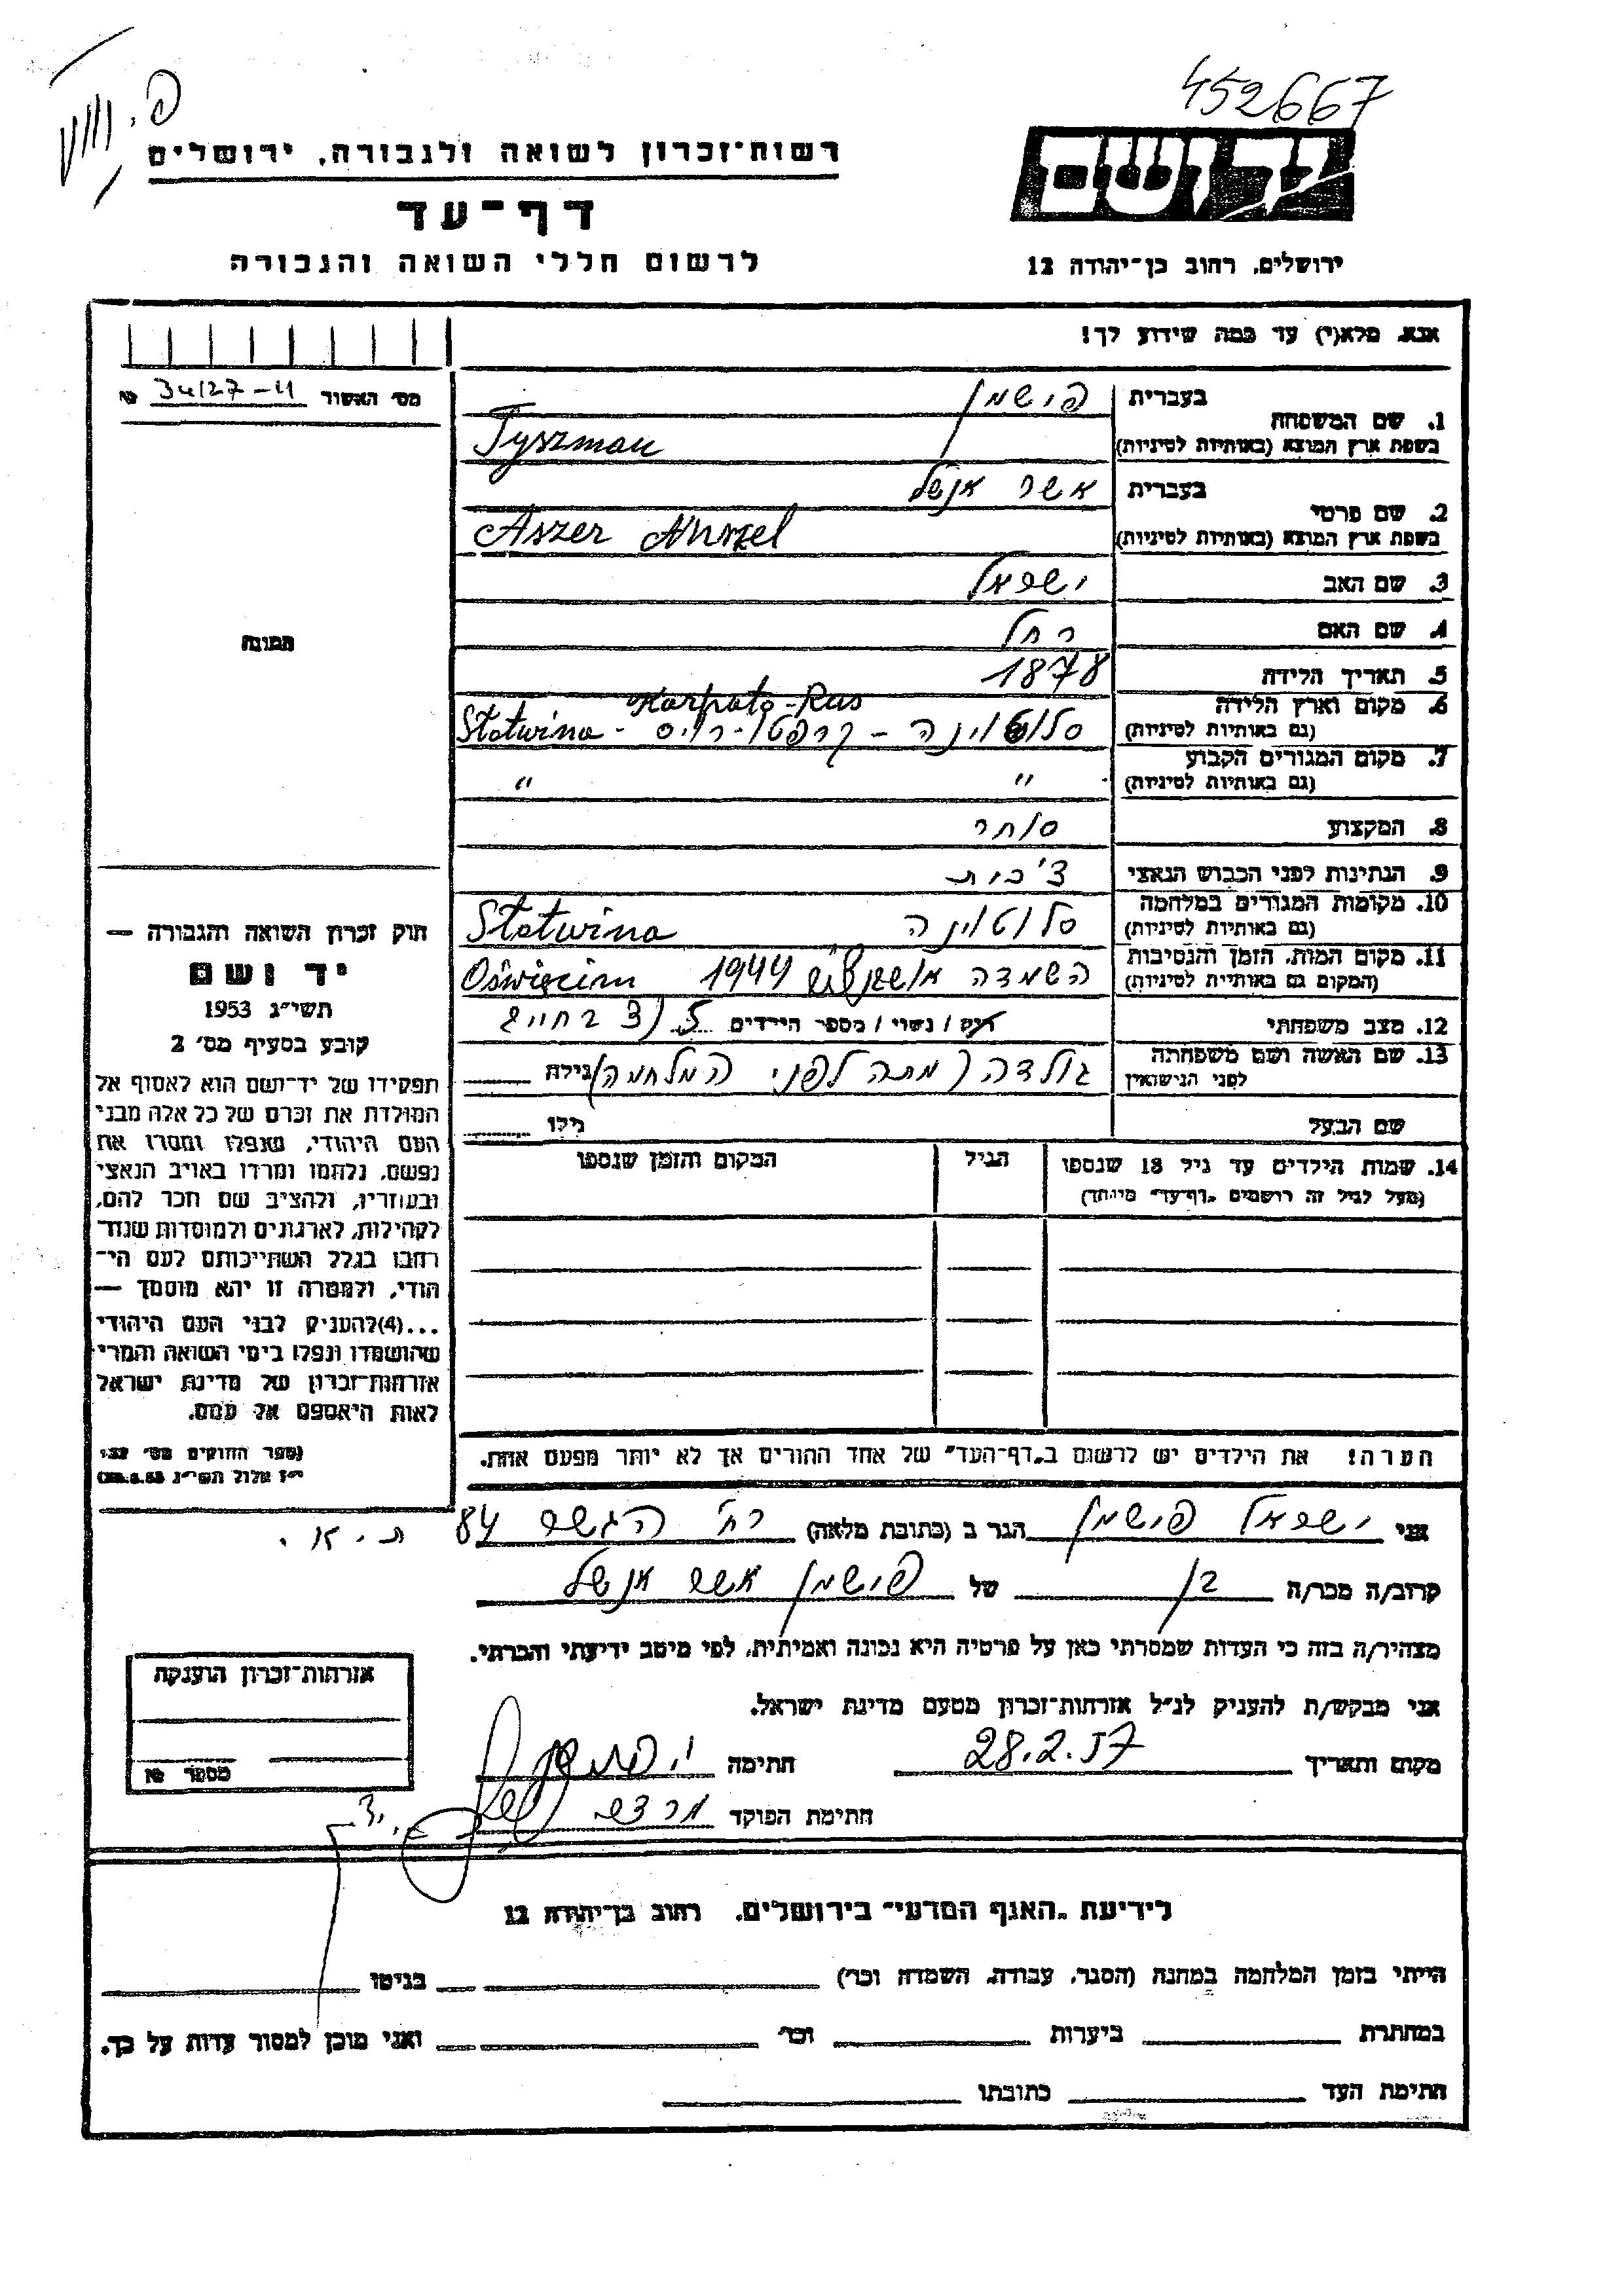 452667
יד ושם
רשות־זכרון לשואה ולגבורה, ירושלים
דף־עד
לרשום חללי השואה והגבורה
ירושלים, רחוב בן־יהודה 12
אנא, מלא(י) עד כמה שידוע לך!
מס׳ האשור 34127-4 №
1. שם המשפחה
בעברית פישמן
בשפת ארץ המוצא (באותיות לטיניות) Fyszman
2. שם פרטי
בעברית אשר אנשל
בשפת ארץ המוצא (באותיות לטיניות) Aszer Anszel
3. שם האב ישראל
4. שם האם רחל
5. תאריך הלידה 1878
6. מקום וארץ הלידה (גם באותיות לטיניות) סלוטוינה - קרפטו-רוס - Slotwina Karpato-Rus
7. מקום המגורים הקבוע (גם באותיות לטיניות) " "
8. המקצוע סוחר
9. הנתינות לפני הכבוש הנאצי צ׳כית
10. מקומות המגורים במלחמה (גם באותיות לטיניות) סלוטוינה Slotwina
11. מקום המות, הזמן והנסיבות (המקום גם באותיות לטיניות) השמדה אושוויץ 1944 Oświęcim
12. מצב משפחתי רוק / נשוי / מספר הילדים 5 (3 בחיים
13. שם האשה ושם משפחתה לפני הנישואין גולדה (מתה לפני המלחמה) גילה
שם הבעל גילו
14. שמות הילדים עד גיל 18 שנספו
(מעל לגיל זה רושמים „דף־עד" מיוחד)
הגיל
המקום והזמן שנספו
הערה! את הילדים יש לרשום ב„דף־העד" של אחד ההורים אך לא יותר מפעם אחת.
תמונה
חוק זכרון השואה והגבורה —
יד ושם
תשי״ג 1953
קובע בסעיף מס׳ 2
תפקידו של יד־ושם הוא לאסוף אל
המולדת את זכרם של כל אלה מבני
העם היהודי, שנפלו ומסרו את
נפשם, נלחמו ומרדו באויב הנאצי
ובעוזריו, ולהציב שם וזכר להם,
לקהילות, לארגונים ולמוסדות שנח־
רבו בגלל השתייכותם לעם הי־
הודי, ולמטרה זו יהא מוסמך —
...(4)להעניק לבני העם היהודי
שהושמדו ונפלו בימי השואה והמרי
אזרחות־זכרון של מדינת ישראל
לאות היאספם אל עמם.
(ספר החוקים מס׳ 132
י״ז אלול תשי״ג 28.8.53)
אני ישראל פישמן הגר ב (כתובת מלאה) רח׳ הגשר 84 ת.א.
קרוב/ה מכר/ה בן של פישמן אשר אנשל
מצהיר/ה בזה כי העדות שמסרתי כאן על פרטיה היא נכונה ואמיתית, לפי מיטב ידיעתי והכרתי.
אני מבקש/ת להעניק לנ״ל אזרחות־זכרון מטעם מדינת ישראל.
מקום ותאריך 28.2.57 חתימה
חתימת הפוקד
אזרחות־זכרון הוענקה
מספר №
לידיעת „האגף המדעי" בירושלים, רחוב בן־יהודה 12
הייתי בזמן המלחמה במחנה (הסגר, עבודה, השמדה וכו׳) בגיטו
במחתרת ביערות וכו׳ ואני מוכן למסור עדות על כך.
חתימת העד כתובתו